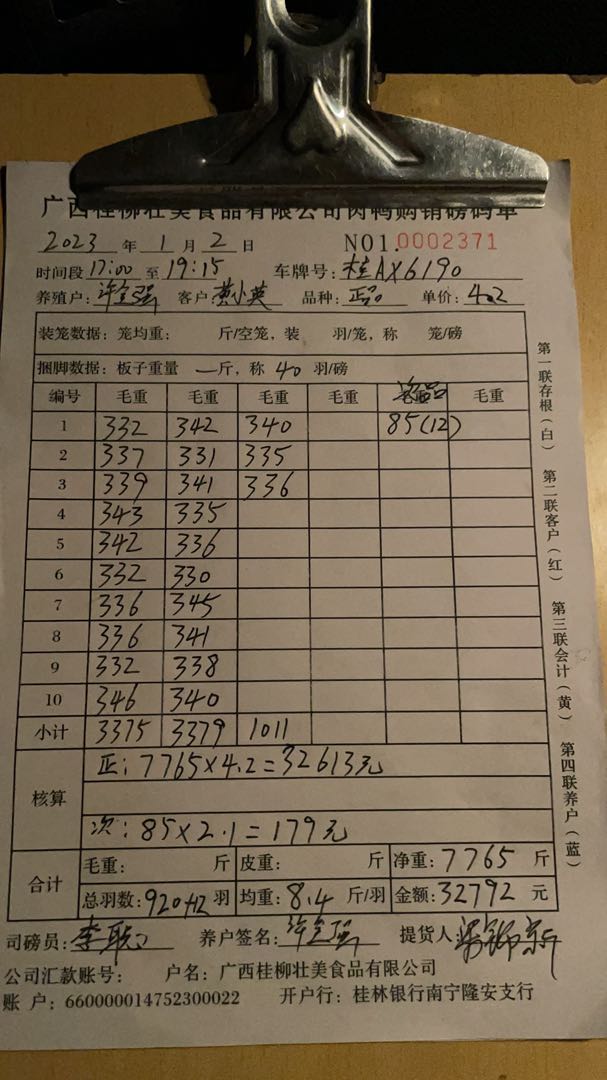 广西桂柳壮美食品有限公司肉鸭购销磅码单
2023 年 1 月 2 日 NO1.0002371
时间段 17:00 至 19:15 车牌号: 桂AX6190
养殖户: 许 强 客户 黄小英 品种: 正品 单价: 4.2
装笼数据: 笼均重: 斤/空笼, 装 羽/笼, 称 笼/磅
捆脚数据: 板子重量 一斤, 称 40 羽/磅
编号 毛重 毛重 毛重 毛重 品 毛重
1 332 342 340 85(12)
2 337 331 335
3 339 341 336
4 343 335
5 342 336
6 332 330
7 336 345
8 336 341
9 332 338
10 346 340
小计 3375 3379 1011
核算
正: 7765×4.2=32613元
次: 85×2.1=179元
合计
毛重: 斤 皮重: 斤 净重: 7765 斤
总羽数: 920+12 羽 均重: 8.4 斤/羽 金额: 32792 元
司磅员: 李 养户签名: 许 强 提货人:
公司汇款账号: 户名: 广西桂柳壮美食品有限公司
账 户: 660000014752300022 开户行: 桂林银行南宁隆安支行
第一联存根(白) 第二联客户(红) 第三联会计(黄) 第四联养户(蓝)